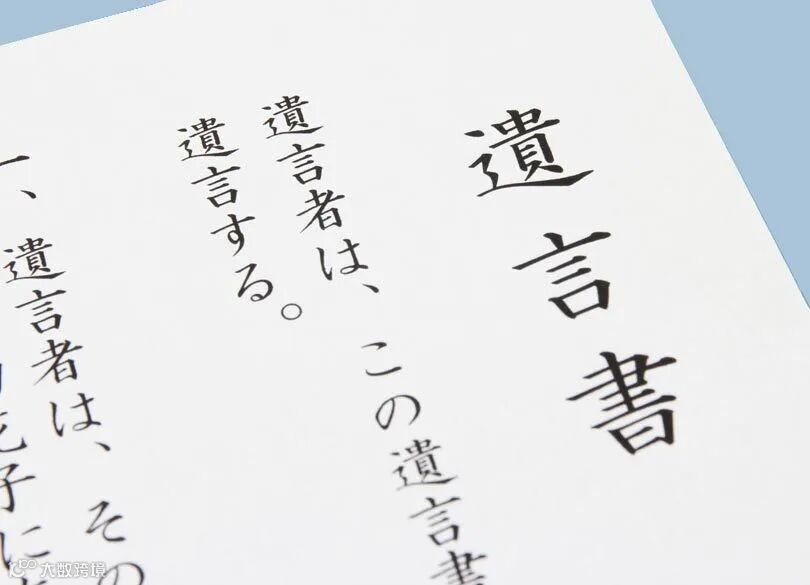 遺言書
遺言者は、この遺言書
遺言する。
一、遺言者は、その
花子に
大数跨境